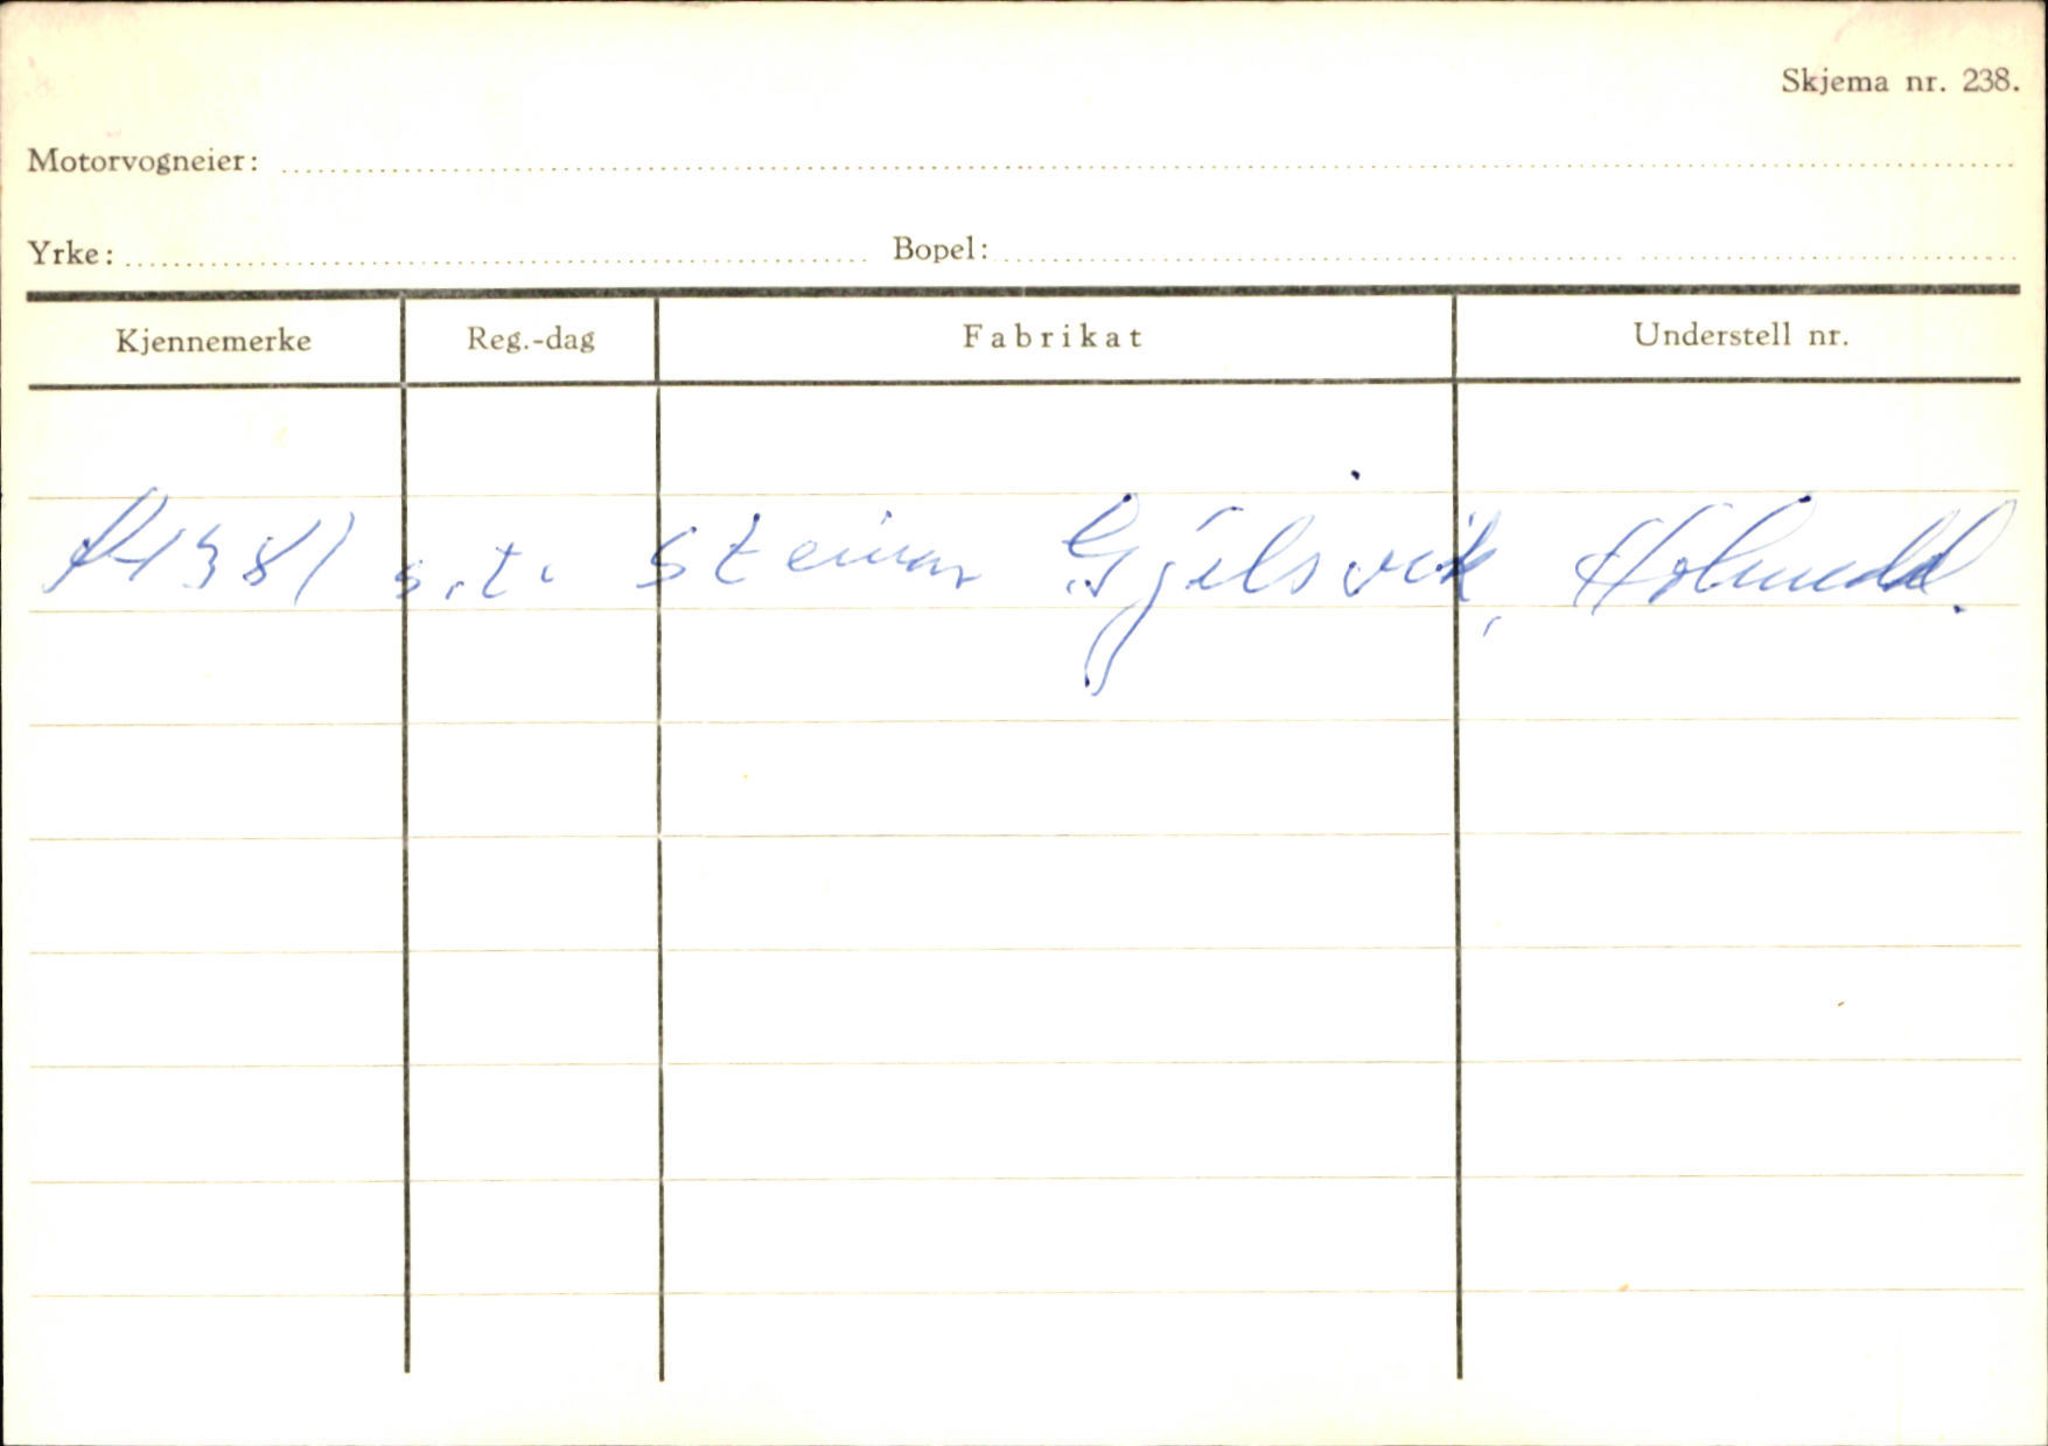 Skjema nr. 238.
Motorvogneier:
Yrke: Bopel:
Kjennemerke Reg.-dag Fabrikat Understell nr.
s.t. Steinar Gjelsvik, Holmedal.